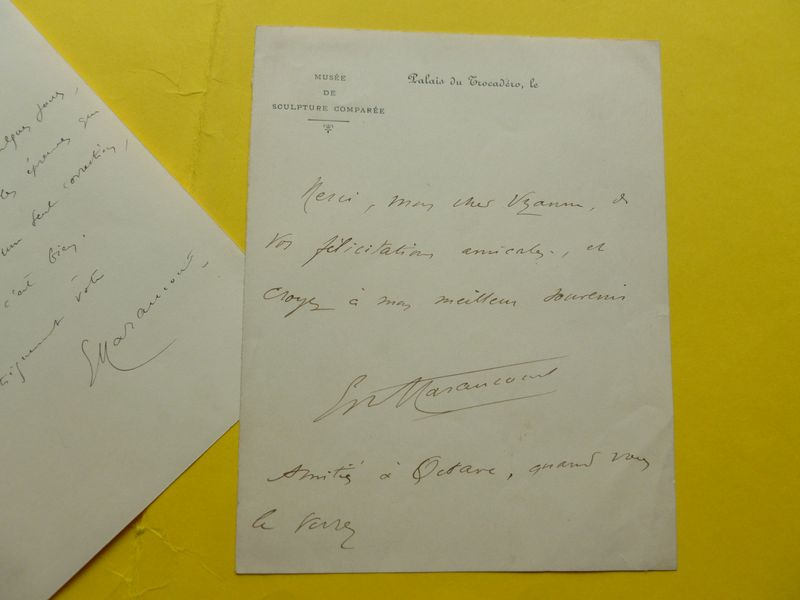 lques jours,
les épreuves du
un seul correction,
c'est bien.
tiquement vôtre
Marancourt
MUSÉE
DE
SCULPTURE COMPARÉE
Palais du Trocadéro, le
Merci, mon cher Uzanne, de
vos félicitations amicales, et
croyez à mon meilleur souvenir
Marancourt
Amitiés à Octave, quand vous
le verrez